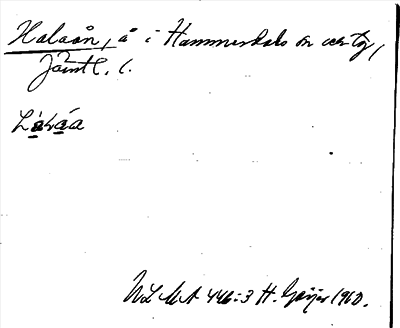 Halaån, å i Hammerdals sn och tg,
Jämtl. l.
ULMA 446:3 H. Geijer 1960.